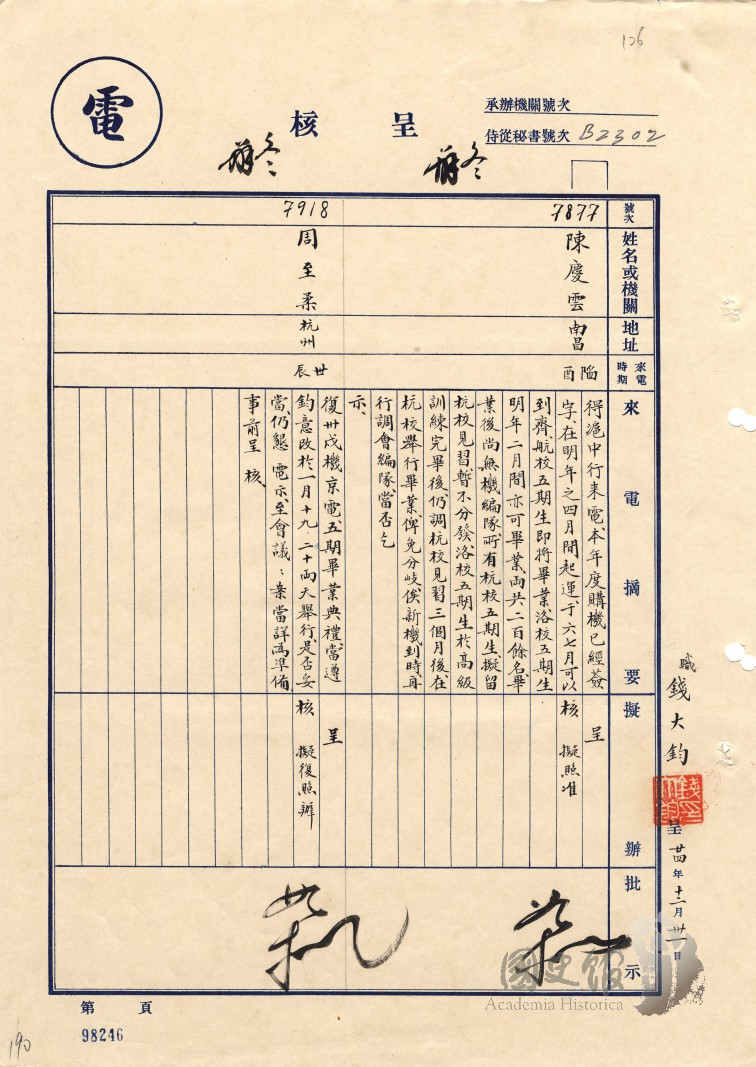 126
電
呈核
承辦機關號次
侍從秘書號次 B2302
號次
姓名或機關
地址
來電時期
來電摘要
擬辦
批示
7877
陳慶雲
南昌
陷酉
得滬中行来電本年度購機已經簽
字在明年之四月間起運于六七月可以
到齊航校五期生即將畢業洛校五期生
明年二月間亦可畢業両共二百餘名畢
業後尚無機編隊所有杭校五期生擬留
杭校見習暫不分發洛校五期生於高級
訓練完畢後仍調杭校見習三個月後在
杭校舉行畢業俾免分岐俟新機到時再
行調會編隊當否乞
示
呈
核 擬照准
7918
周至柔
杭州
卅辰
復卅戌機京電五期畢業典禮當遵
鈞意改於一月十九二十両天舉行是否妥
當仍懇 電示至會議議案當詳為準備
事前呈 核
呈
核 擬復照辦
職錢大鈞
呈 廿四年十二月卅一日
國史館
Academia Historica
第 頁
98246
190